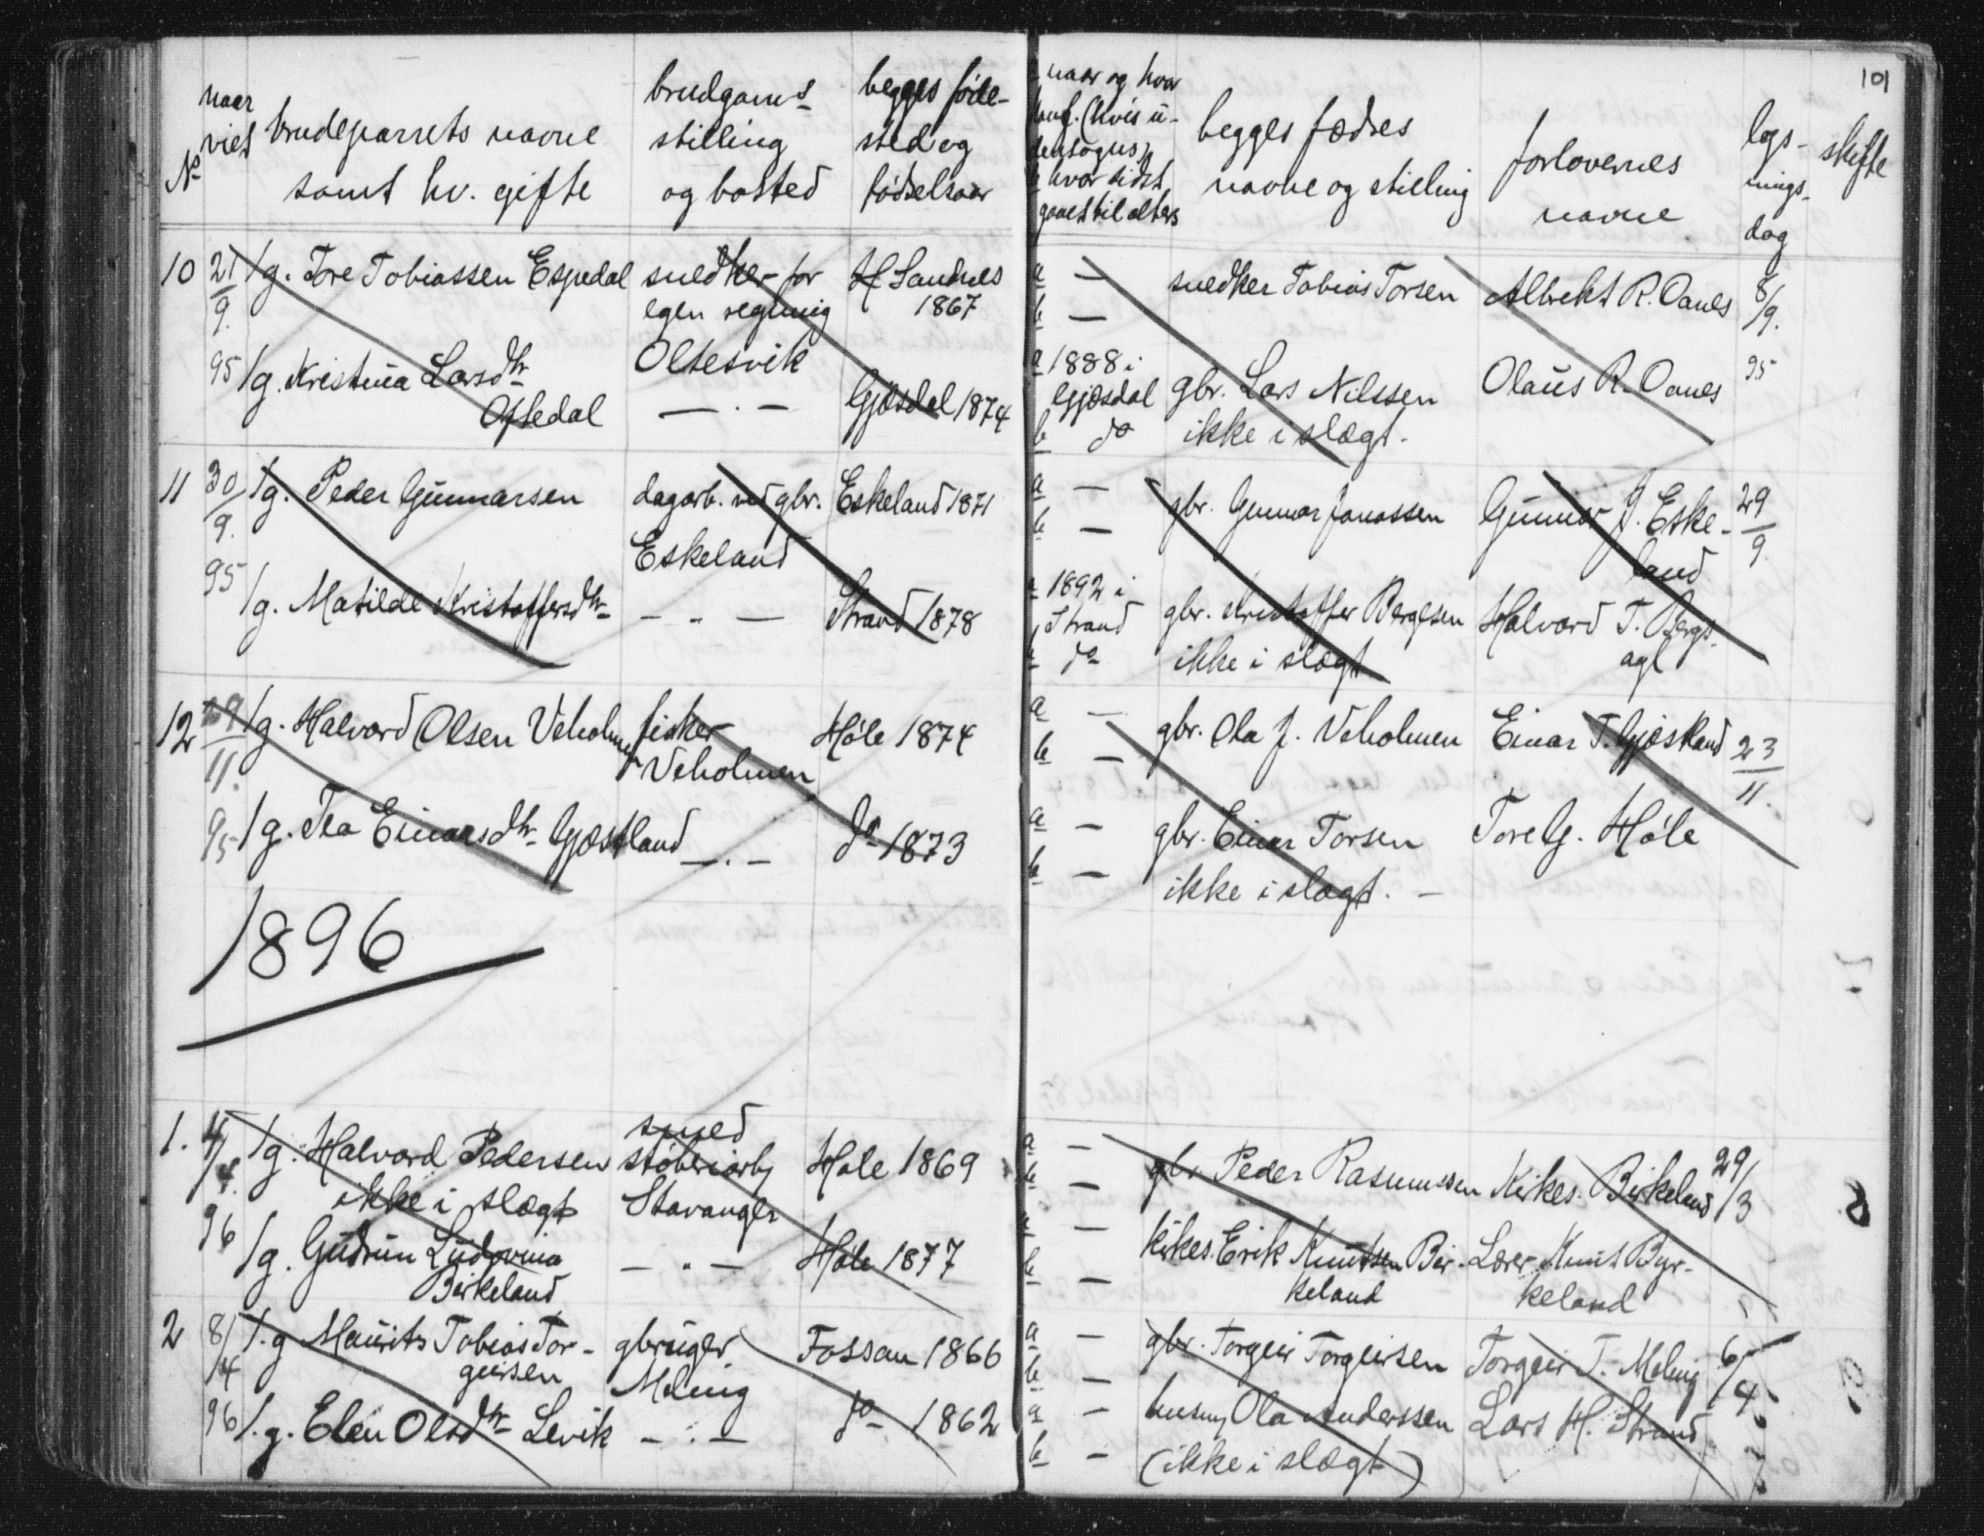 101
No
naar
viet
brudeparrets navne
samt hv. gifte
brudgoms
stilling
og bosted
begges føde-
sted og
fødselsaar
naar og hvor
(hvis u-
hvor sidst
gaaet til alters
begges fædres
navne og stilling
forlovernes
navne
lys-
nings-
dag
skifte
10 21/9. 95
1g. Tore Tobiassen Espedal
snedker for
egen regning
Oltesvik
H Sandnes
1867
a —
b —
snedker Tobias Torsen
Albrekt R. Oanes
8/9. 95
1g. Kristina Larsdtr
Oftedal
— . —
Gjæsdal 1874
a 1888 i
Gjæsdal
b do
gbr. Lars Nilssen
ikke i slægt.
Olaus R. Oanes
11 30/9. 95
1g. Peder Gunnarsen
dagarb. ved gbr.
Eskeland
Eskeland 1871
a —
b —
gbr. Gunnar Jonassen
Gunnar J. Eske-
land
29/9.
1g. Matilde Kristoffersdtr
— . —
Strand 1878
a 1892 i
Strand
b do
gbr. Kristoffer Bergesen
ikke i slægt
Halvard T. Bergs-
agl
12 29/11. 95
1g. Halvard Olsen Veholmen
fisker
Veholmen
Høle 1874
a —
b —
gbr. Ola J. Veholmen
Einar T. Gjæstland
23/11.
1g. Tea Einarsdtr Gjæstland
— . —
do 1873
a —
b —
gbr. Einar Torsen
ikke i slægt. —
Tore G. Høle
1896
1. 4/4. 96
1g. Halvard Pedersen
ikke i slægt
smed
støberiarb
Stavanger
Høle 1869
a —
b —
gbr Peder Rasmussen
Kirkes. Birkeland
29/3
8
1g. Gudrun Ludovina
Birkeland
— . —
Høle 1877
a —
b —
Kirkes. Erik Knutsen Bir-
keland
Lærer Knut Byr-
keland
2 8/4 96
1.g Maurits Tobias Tor-
geirsen
gbruger
Meling
Fossan 1866
a —
b —
gbr. Torgeir Torgeirsen
Torgeir T. Meling
6/4
1.g. Elen Olsdtr Levik
— . —
do 1862
a —
b —
husm Ola Anderssen
(ikke i slægt)
Lars H. Strand